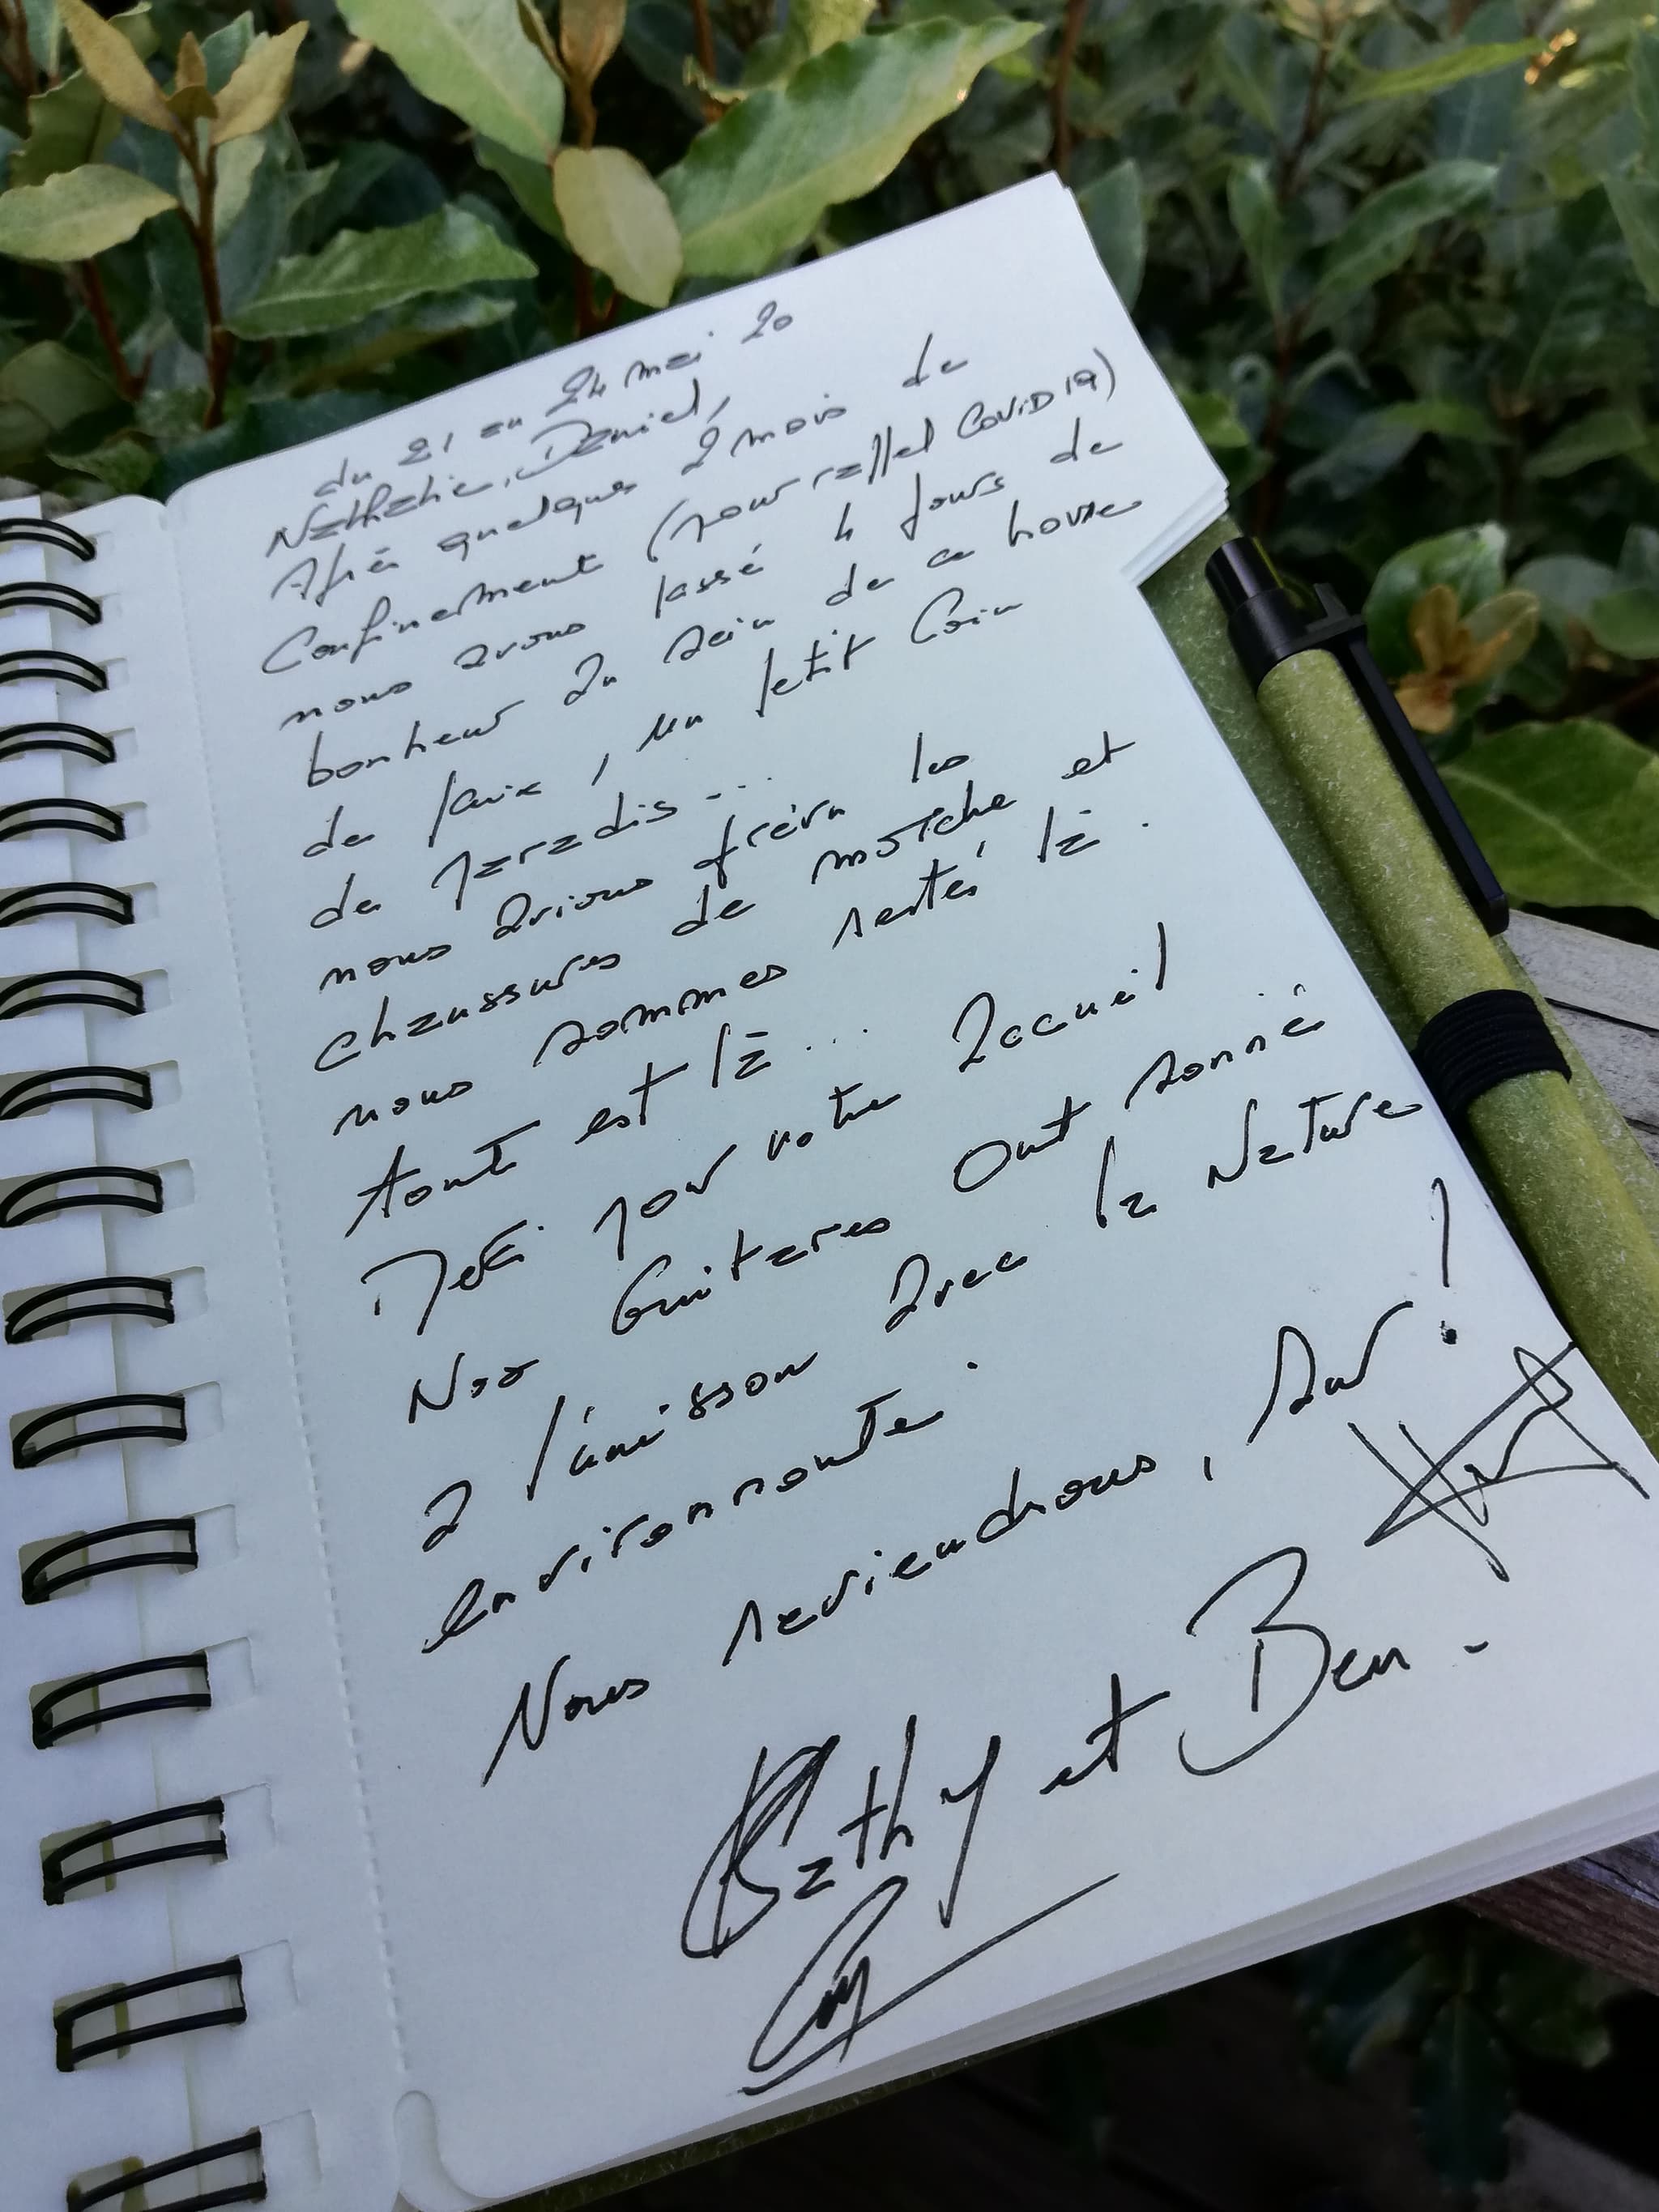 du 21 au 24 mai 20
Nathalie, Daniel,
Après quelques 2 mois de
Confinement (pour rappel COVID 19)
nous avons passé 4 jours de
bonheur au sein de ce havre
de paix, un petit Coin
de paradis...
nous avions prévu les
chaussures de marche et
nous sommes restés là.
tout est là...
Merci pour votre accueil
Nos Guitares Ont sonné
a l'unisson avec la Nature
environnante.
Nous reviendrons, sur !
Kathy et Ben -